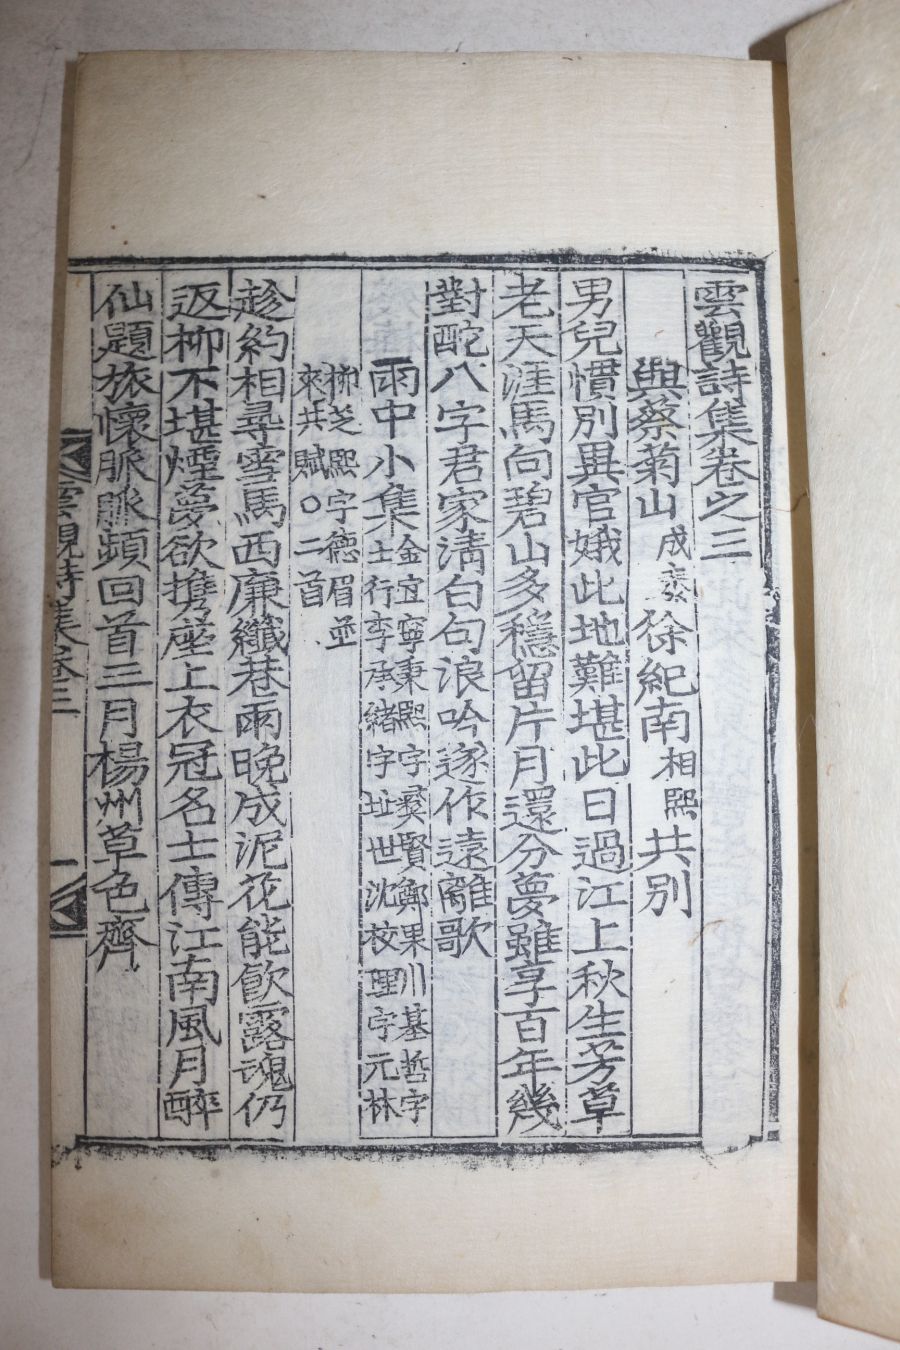 雲觀詩集卷之三
與蔡菊山成泰徐紀南相熙共別
男兒慣別異官娥此地難堪此日過江上秋生芳草
老天涯馬向碧山多穩留片月還分夢雖享百年幾
對酡八字君家淸白句浪吟遂作遠離歌
雨中小集金宜寧秉熙字彛賢鄭果川基哲字
士行李承緖字址世沈校理字元林
柳㳣熙字德眉並
來共賦○二首
趁約相尋雪馬西廉纖巷雨晩成泥花能飮露魂仍
返柳不堪煙夢欲擕座上衣冠名士傳江南風月醉
仙題旅懷脈脈頻回首三月楊州草色齊
雲觀詩集卷三
一